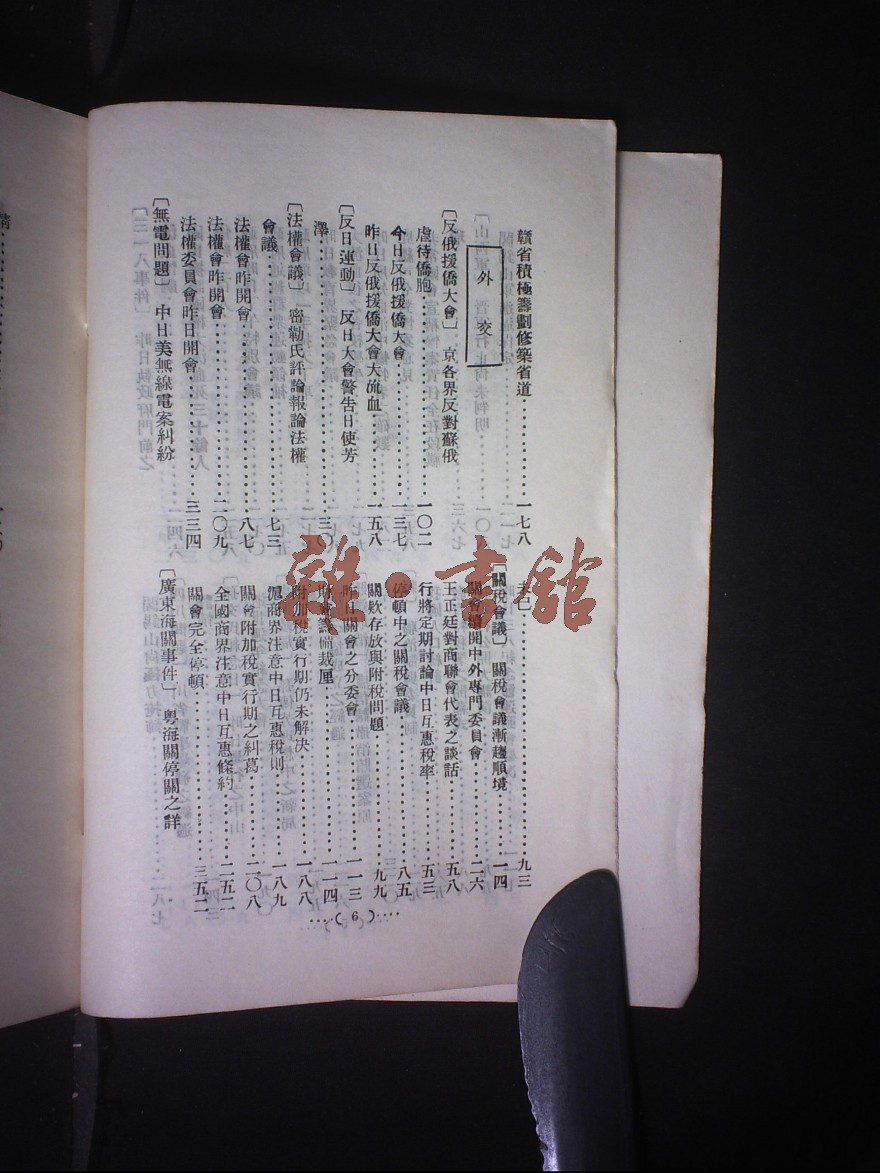 贛省積極籌劃修築省道⋯⋯⋯⋯一七八
外交
〔反俄援僑大會〕 京各界反對蘇俄
虐待僑胞⋯⋯⋯⋯一〇二
今日反俄援僑大會⋯⋯⋯⋯一三七
昨日反俄援僑大會大流血⋯⋯⋯⋯一五八
〔反日運動〕 反日大會警告日使芳
澤⋯⋯⋯⋯三〇
〔法權會議〕 密勒氏評論報論法權
會議⋯⋯⋯⋯七三
法權會昨開會⋯⋯⋯⋯八七
法權會昨開會⋯⋯⋯⋯二〇九
法權委員會昨日開會⋯⋯⋯⋯三三四
〔無電問題〕 中日美無線電案糾紛
未已⋯⋯⋯⋯九三
〔關稅會議〕 關稅會議漸趨順境⋯⋯一四
關會續開中外專門委員會⋯⋯⋯⋯二六
王正廷對商聯會代表之談話⋯⋯⋯⋯五八
行將定期討論中日互惠稅率⋯⋯⋯⋯五三
停頓中之關稅會議⋯⋯⋯⋯八五
關欵存放與附稅問題⋯⋯⋯⋯九九
昨日關會之分委會⋯⋯⋯⋯一一三
財會籌備裁厘⋯⋯⋯⋯一一四
附加稅實行期仍未解决⋯⋯⋯⋯一八八
滬商界注意中日互惠稅則⋯⋯⋯⋯一八九
關會附加稅實行期之糾葛⋯⋯⋯⋯二〇八
全國商界注意中日互惠條約⋯⋯⋯⋯二五二
關會完全停頓⋯⋯⋯⋯三五二
〔廣東海關事件〕 粵海關停關之詳
⋯⋯( 6 )⋯⋯
雜·書館